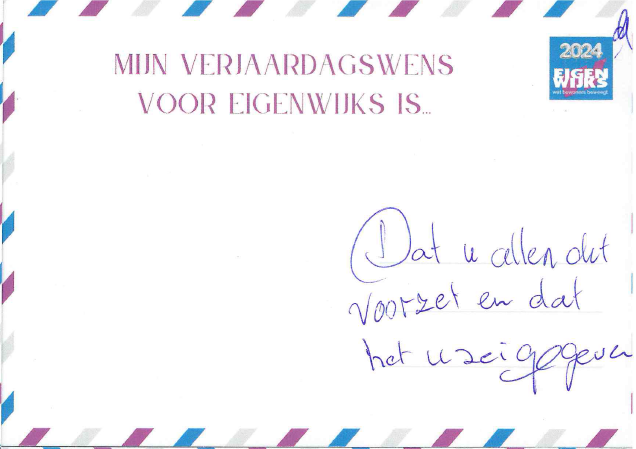 MIJN VERJAARDAGSWENS
VOOR EIGENWIJKS IS...
2024
EIGEN
WIJKS
Dat u allen dit
voorzet en dat
het u zei gegeven